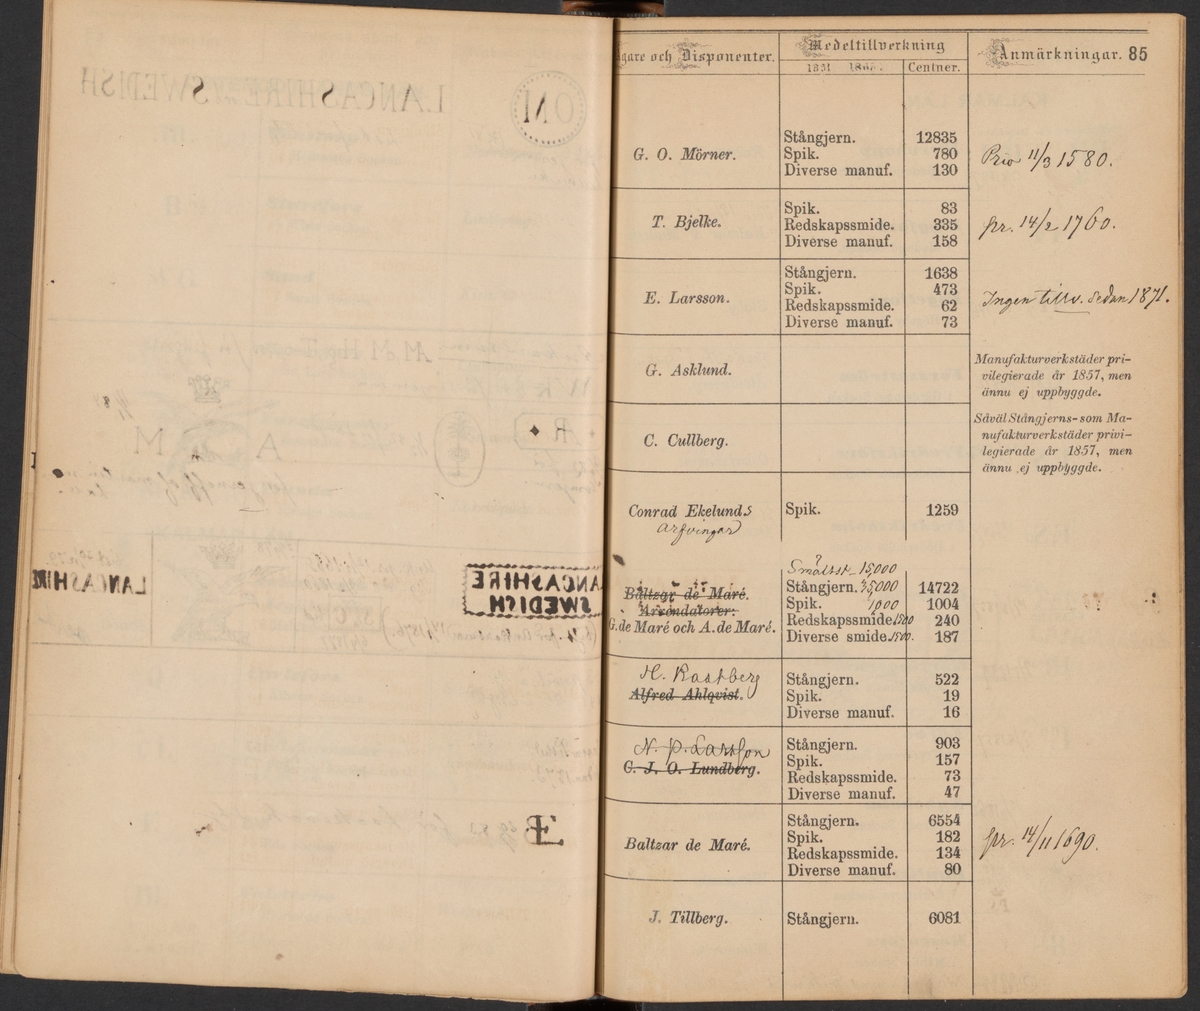 LANCASHIRE SWEDISH
ON
A M
R
LANCASHIRE
LANCASHIRE
SWEDISH
gare och Disponenter. Medeltillverkning Anmärkningar. 85
Centner.
G. O. Mörner. Stångjern. 12835
Spik. 780
Diverse manuf. 130
Priv 11/3 1580.
T. Bjelke. Spik. 83
Redskapssmide. 335
Diverse manuf. 158
pr. 14/2 1760.
E. Larsson. Stångjern. 1638
Spik. 473
Redskapssmide. 62
Diverse manuf. 73
Ingen tillv. sedan 1871.
G. Asklund.
Manufakturverkstäder pri-
vilegierade år 1857, men
ännu ej uppbyggde.
C. Cullberg.
Såväl Stångjerns- som Ma-
nufakturverkstäder privi-
legierade år 1857, men
ännu ej uppbyggde.
Conrad Ekelunds Spik. 1259
arfvingar
Smältst. 15,000
Baltzar de Maré. Stångjern. 35,000 14722
Arrondatorer: Spik. 1000 1004
G. de Maré och A. de Maré. Redskapssmide 1500 240
Diverse smide 1500. 187
H. Rastberg
Alfred Ahlqvist. Stångjern. 522
Spik. 19
Diverse manuf. 16
N. P. Larsson
C. J. O. Lundberg. Stångjern. 903
Spik. 157
Redskapssmide. 73
Diverse manuf. 47
Baltzar de Maré. Stångjern. 6554
Spik. 182
Redskapssmide. 134
Diverse manuf. 80
pr. 14/11 1690.
J. Tillberg. Stångjern. 6081